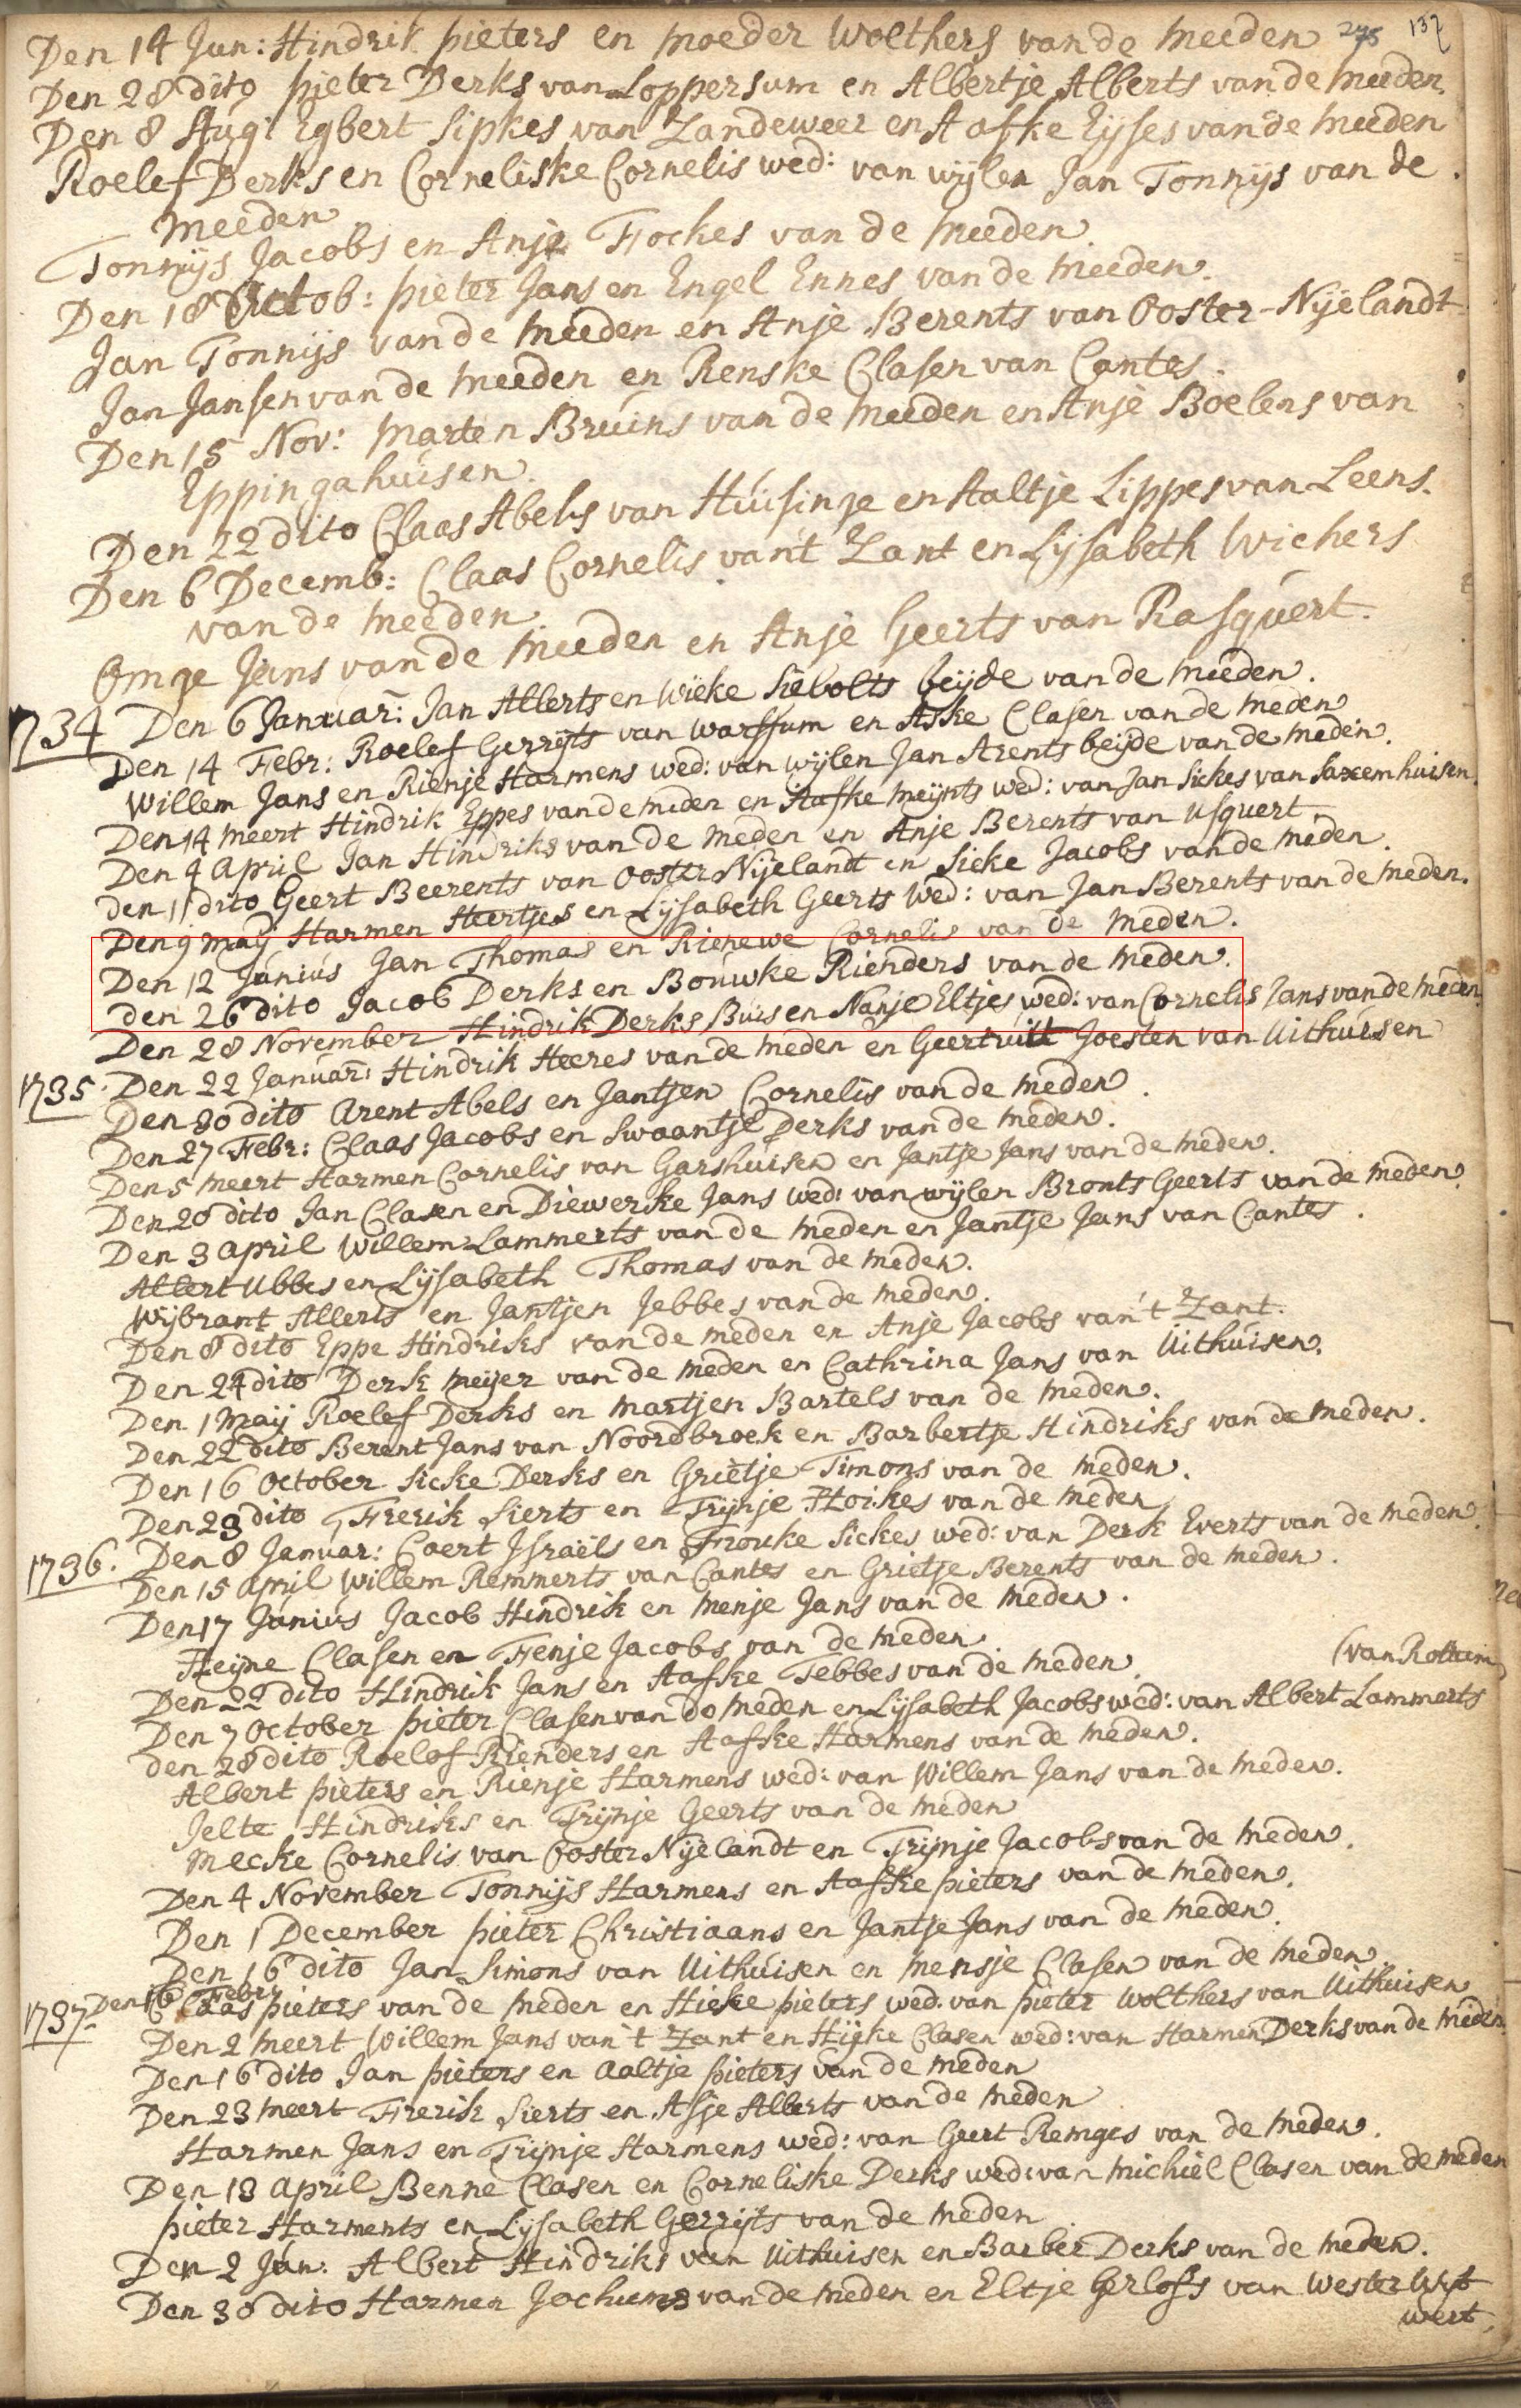 275 137
Den 14 Jun: Hindrik pieters en moeder Wolthers van de meeden
Den 28 dito pieter Derks van Loppersum en Albertje Alberts van de meeden.
Den 8 Aug: Egbert Sipkes van Zandeweer en Aafke Eijses van de meeden
Roelef Derks en Corneliske Cornelis wed: van wijlen Jan Tonnijs van de
meeden
Tonnijs Jacobs en Anje Fockes van de meeden.
Den 18 Octob: pieter Jans en Engel Ennes van de meeden.
Jan Tonnijs van de meeden en Anje Berents van Ooster-Nijelandt
Jan Jansen van de meeden en Renske Clasen van Cantes.
Den 15 Nov: Marten Bruins van de meeden en Anje Boelens van
Eppingahuisen.
Den 22 dito Claas Abels van Huisinge en Aaltje Lippes van Leens.
Den 6 Decemb: Claas Cornelis van't Zant en Lijsabeth Wichers
van de meeden.
Omge Jans van de meeden en Anje Geerts van Rasquert.
1734 Den 6 Januar: Jan Allerts en Wieke Siebolts beijde van de meeden.
Den 14 Febr: Roelef Gerrijts van Warffum en Aske Clasen van de meden
Willem Jans en Rienje Harmens wed: van wijlen Jan Arents beijde van de meden.
Den 14 meert Hindrik Eppes van de meden en Aafke Meijnts wed: van Jan Sickes van Saxemhuisen.
Den 4 April Jan Hindriks van de meden en Anje Berents van Usquert.
den 11 dito Geert Beerents van Ooster Nijelandt en Sieke Jacobs van de meden.
Den 9 maij Harmen Heertjes en Lijsabeth Geerts Wed: van Jan Berents van de meden.
Den 12 Junius Jan Thomas en Rienewe Cornelis van de meden.
den 26 dito Jacob Derks en Bouwke Rienders van de meden.
Den 28 November Hindrik Derks Buis en Nanje Eltjes wed: van Cornelis Jans van de meden.
1735. Den 22 Januar: Hindrik Heeres van de meden en Geertruit Joesten van Uithuisen
Den 30 dito Arent Abels en Jantjen Cornelis van de meden.
Den 27 Febr: Claas Jacobs en Swaantje Derks van de meden.
Den 5 meert Harmen Cornelis van Garshuisen en Jantje Jans van de meden.
Den 20 dito Jan Clasen en Diewerke Jans wed: van wijlen Bronts Geerts van de meden.
Den 3 April Willem Lammerts van de meden en Jantje Jans van Cantes.
Allert Ubbes en Lijsabeth Thomas van de meden.
Wijbrant Allerts en Jantjen Jebbes van de meden.
Den 8 dito Eppe Hindriks van de meden en Anje Jacobs van't Zant.
Den 24 dito Derk Meijer van de meden en Cathrina Jans van Uithuisen.
Den 1 Maij Roelef Derks en Martjen Bartels van de meden.
Den 22 dito Berent Jans van Noordbroek en Barbertje Hindriks van de meden.
Den 16 October Sicke Derks en Grietje Timons van de meden.
Den 23 dito Frerik Sierts en Trijnje Hoikes van de meden
1736. Den 8 Januar: Coert Israëls en Frouke Sickes wed: van Derk Everts van de meden.
Den 15 April Willem Remmerts van Cantes en Grietje Berents van de meden.
Den 17 Junius Jacob Hindrik en Menje Jans van de meden.
Heijne Clasen en Fenje Jacobs van de meden.
Den 22 dito Hindrik Jans en Aafke Tebbes van de meden. (van Rottum
Den 7 October pieter Clasen van de meden en Lijsabeth Jacobs wed: van Albert Lammerts
den 28 dito Roelof Rienders en Aafke Harmens van de meden.
Albert pieters en Rienje Harmens wed: van Willem Jans van de meden.
Jelte Hindriks en Trijnje Geerts van de meden
Mecke Cornelis van Ooster Nijelandt en Trijnje Jacobs van de meden.
Den 4 November Tonnijs Harmens en Aafke pieters van de meden.
Den 1 December pieter Christiaans en Jantje Jans van de meden.
Den 16 dito Jan Simons van Uithuisen en Mensje Clasen van de meden.
1737. Den 16 Febr: Claas pieters van de meden en Hieke pieters wed. van pieter Wolthers van Uithuisen
Den 2 meert Willem Jans van't Zant en Hijke Clasen wed: van Harmen Derks van de meden.
Den 16 dito Jan pieters en Aaltje pieters van de meden
Den 23 meert Frerik Sierts en Asje Alberts van de meden
Harmen Jans en Trijnje Harmens wed: van Geert Remges van de meden.
Den 13 April Benne Clasen en Corneliske Derks wed: van Michiel Clasen van de meden
pieter Harments en Lijsabeth Gerrijts van de meden
Den 2 Jun: Albert Hindriks van Uithuisen en Barber Derks van de meden.
Den 30 dito Harmen Jochums van de meden en Eltje Gerlofs van Wester Wijt
wert.